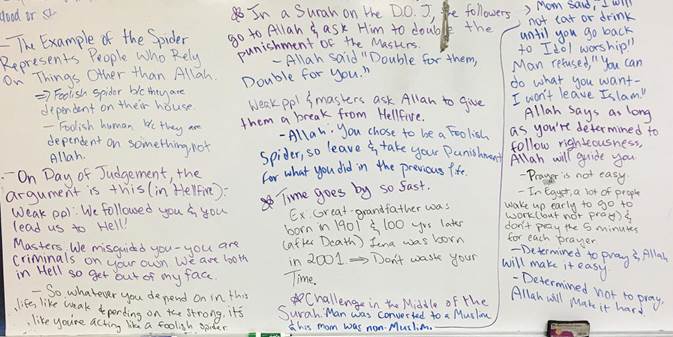 flood or st
- The Example of the Spider
Represents People Who Rely
On Things Other than Allah.
⇒ Foolish spider b/c they are
dependent on their house.
- Foolish human b/c they are
dependent on something, not
Allah.
- On Day of Judgement, the
argument is this (in Hellfire):-
Weak ppl: We followed you & you
lead us to Hell!
Masters: We misguided you - you are
criminals on your own. We are both
in Hell so get out of my face.
- So whatever you depend on in this
life, like weak depending on the strong, it's
like you're acting like a foolish spider.
In a Surah on the D.O.J, followers
go to Allah & ask Him to double the
punishment of the Masters.
- Allah said "Double for them,
Double for you."
Weak ppl & masters ask Allah to give
them a break from Hellfire.
- Allah: You chose to be a Foolish
Spider, so leave & take your Punishment
for what you did in the previous life.
Time goes by so fast.
Ex. Great-grandfather was
born in 1901 & 100 yrs later
(after Death) Iena was born
in 2001 ⇒ Don't waste your
Time.
Challenge in the Middle of the
Surah: Man was converted to a Muslim
& his mom was non-Muslim.
Mom said "I will
not eat or drink
until you go back
to Idol worship!"
Man refused, "You can
do what you want-
I won't leave Islam."
Allah says as long
as you're determined to
follow righteousness,
Allah will guide you
- Prayer is not easy.
- In Egypt, a lot of people
wake up early to go to
work (but not pray) &
don't pray the 5 minutes
for each prayer
- Determined to pray & Allah
will make it easy
- Determined not to pray,
Allah will make it hard